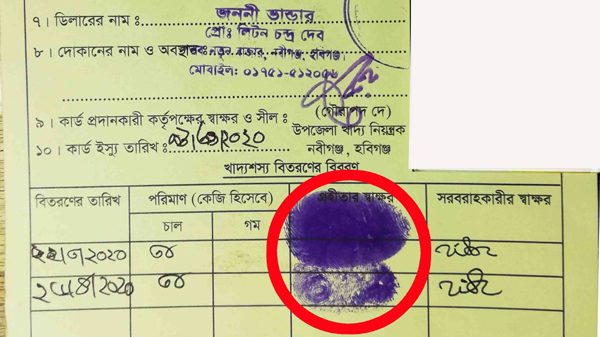 ৭। ডিলারের নাম ঃ জননী ভান্ডার
প্রোঃ লিটন চন্দ্র দেব
৮। দোকানের নাম ও অবস্থান নবীগঞ্জ, হবিগঞ্জ।
মোবাইল: ০১৭৫১-৫১২০৫৬
৯। কার্ড প্রদানকারী কর্তৃপক্ষের স্বাক্ষর ও সীল ঃ (গৌরাপদ দে)
উপজেলা খাদ্য নিয়ন্ত্রক
১০। কার্ড ইস্যু তারিখ ঃ ২০২০ নবীগঞ্জ, হবিগঞ্জ
খাদ্যশস্য বিতরণের বিবরণ
বিতরণের তারিখ পরিমাণ (কেজি হিসেবে) গ্রহীতার স্বাক্ষর সরবরাহকারীর স্বাক্ষর
চাল গম
২০২০ ৩০
২০২০ ৩০